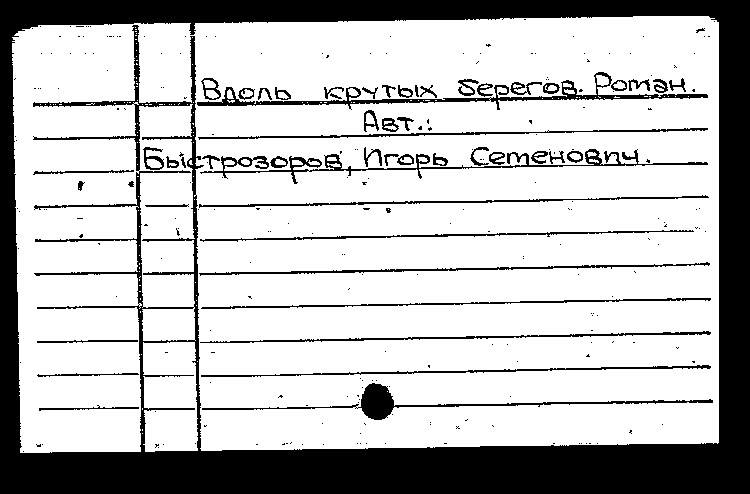 Вдоль крутых берегов. Роман.
Авт.:
Быстрозоров, Игорь Семенович.